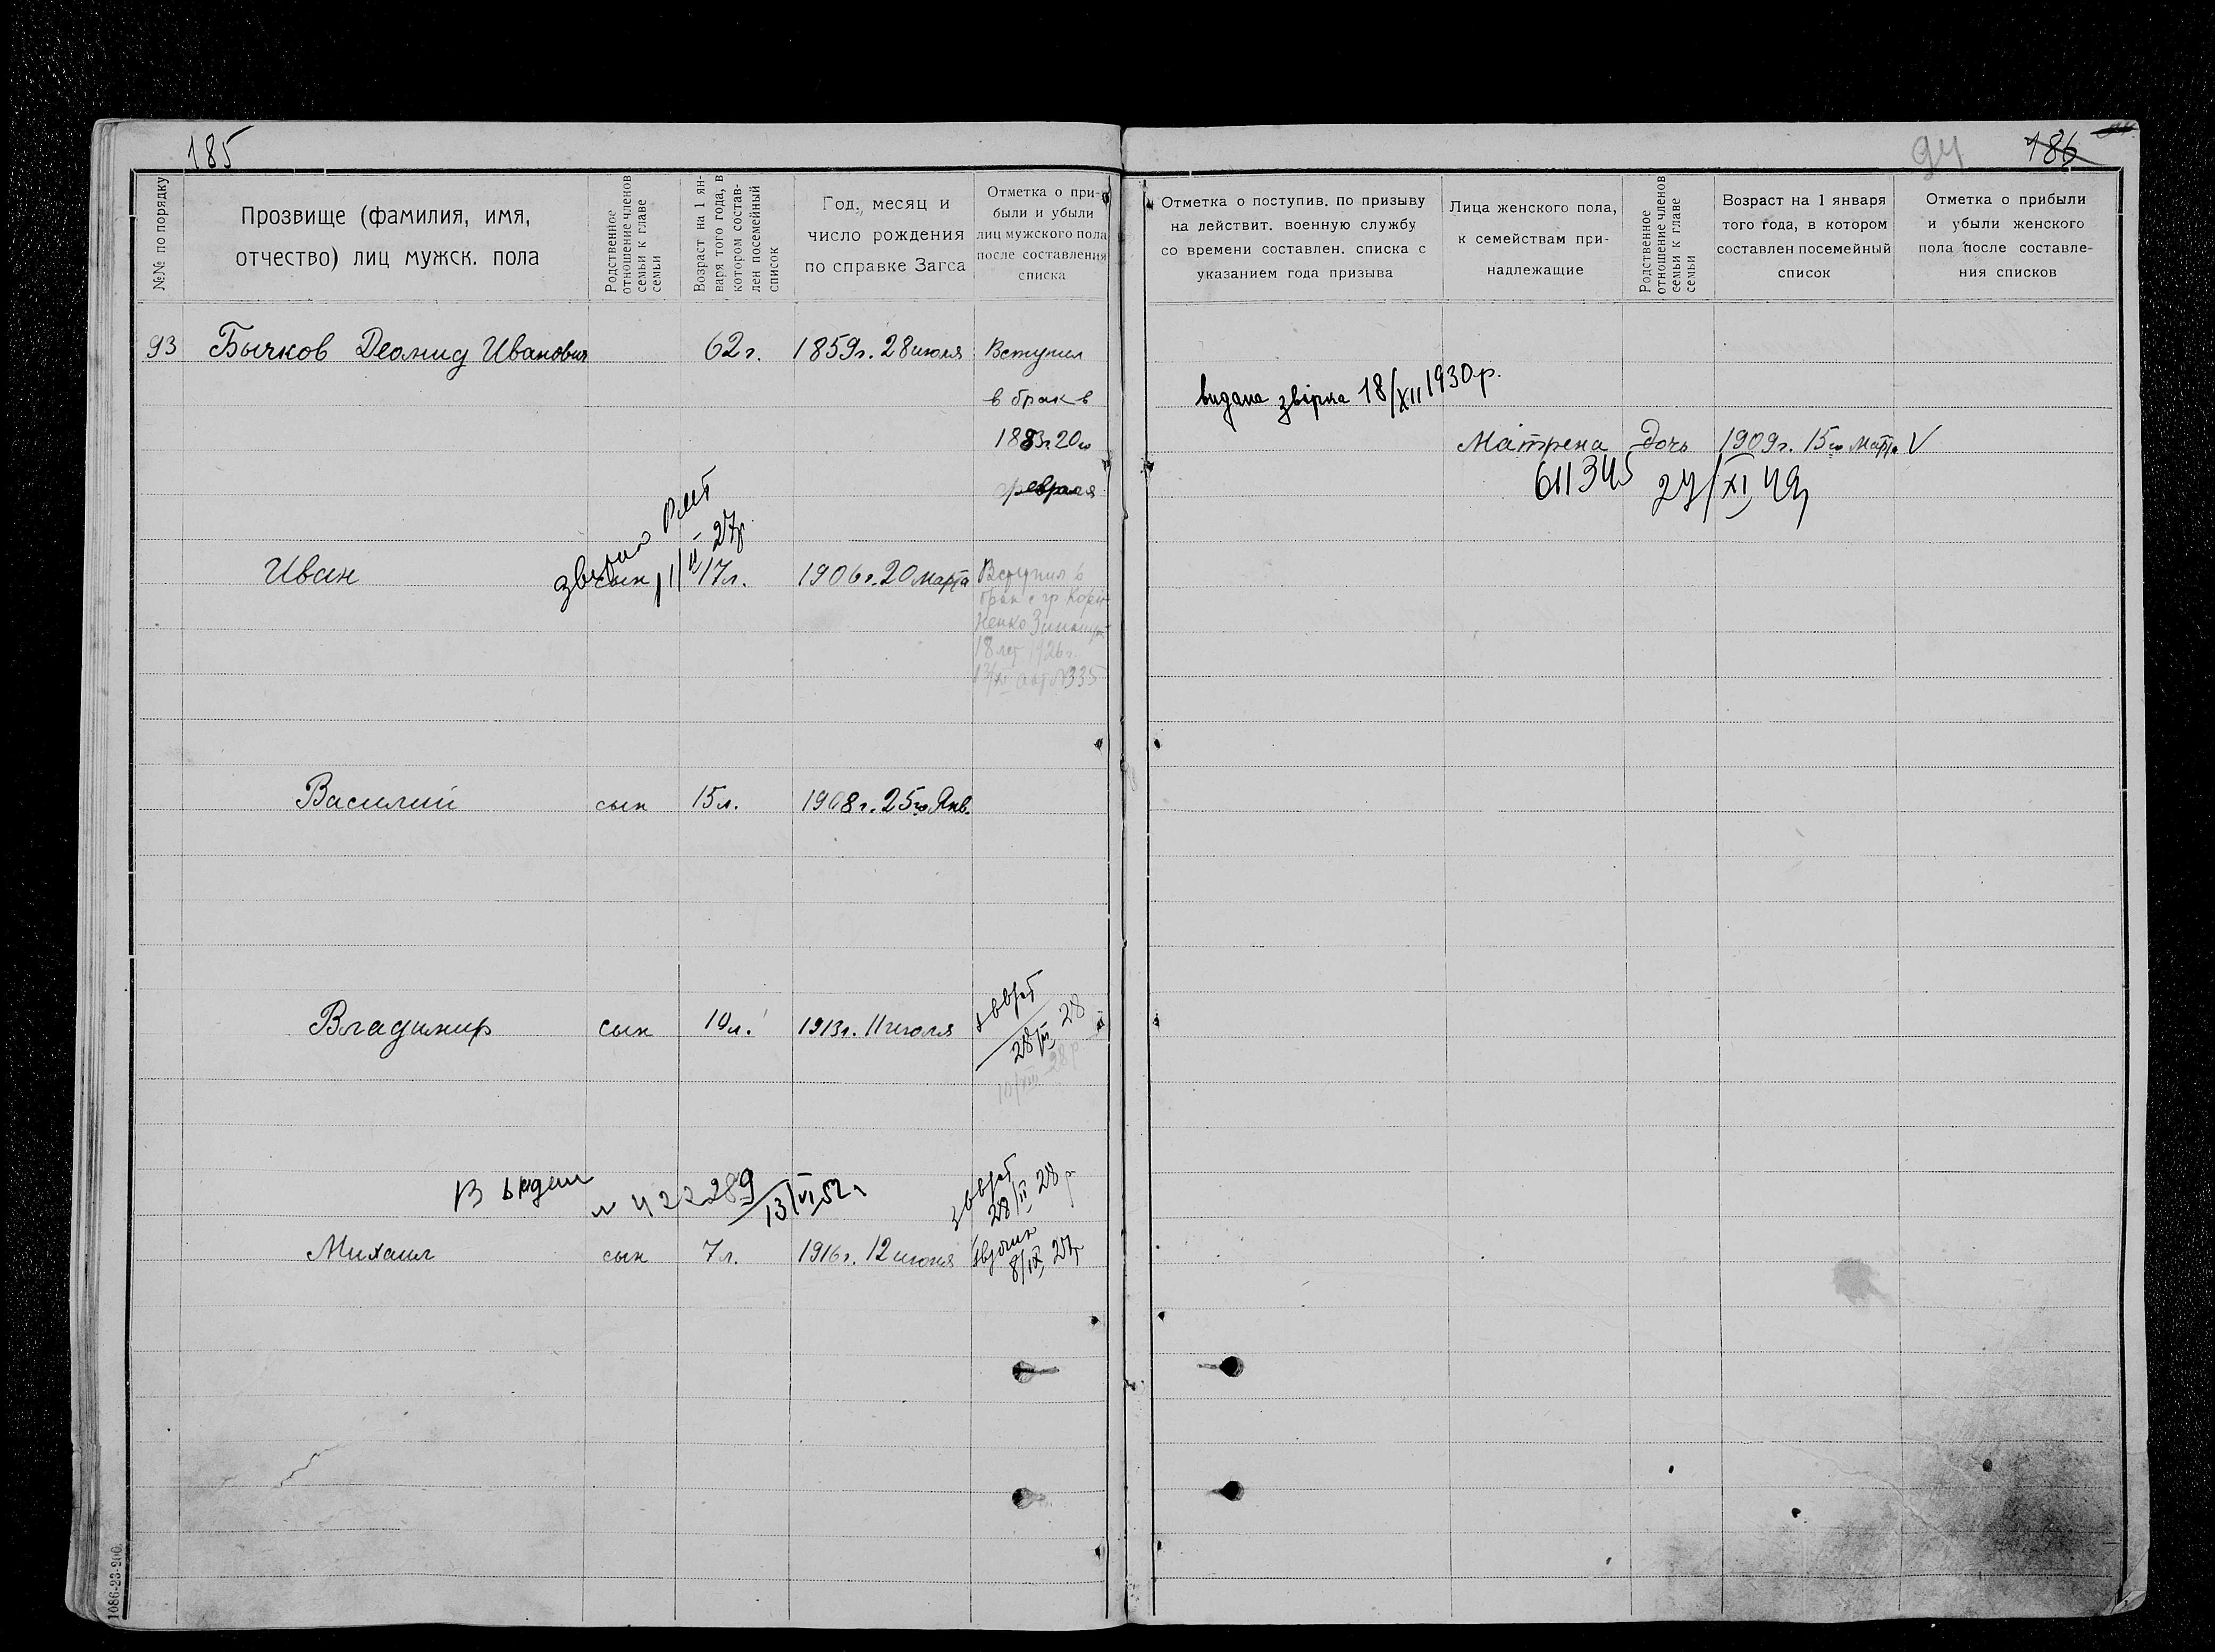 185
№№ по порядку
Прозвище (фамилия, имя,
отчество) лиц мужск. пола
Родственное
отношение членов
семьи к главе
семьи
Возраст на 1 ян-
варя того года, в
котором состав-
лен посемейный
список
Год, месяц и
число рождения
по справке Загса
Отметка о при-
были и убыли
лиц мужского пола
после составления
списка
93 Бычков Леонид Иванович 62 г. 1859 г. 28 июля Вступил
в брак в
1883 г. 20 го
февраля
11/II 27 р.
Иван сын 17 л. 1906 г. 20 марта Вступил в
брак с гр.
18 лет 1926 г.
№335
Василий сын 15 л. 1908 г. 25 го Янв.
Владимир сын 10 л. 1913 г. 11 июля
28/II 28
10/XII 28 р.
№ 422289
13/VI 52 г.
28/II 28 р.
Михаил сын 7 л. 1916 г. 12 июня
8/IX 27 р.
1086-23-200.
94 186
Отметка о поступив. по призыву
на действит. военную службу
со времени составлен. списка с
указанием года призыва
Лица женского пола,
к семействам при-
надлежащие
Родственное
отношение членов
семьи к главе
семьи
Возраст на 1 января
того года, в котором
составлен посемейный
список
Отметка о прибыли
и убыли женского
пола после составле-
ния списков
видана звірка 18/XII 1930 р.
Матрена дочь 1909 г. 15 го Марта V
611345 27/XI 49